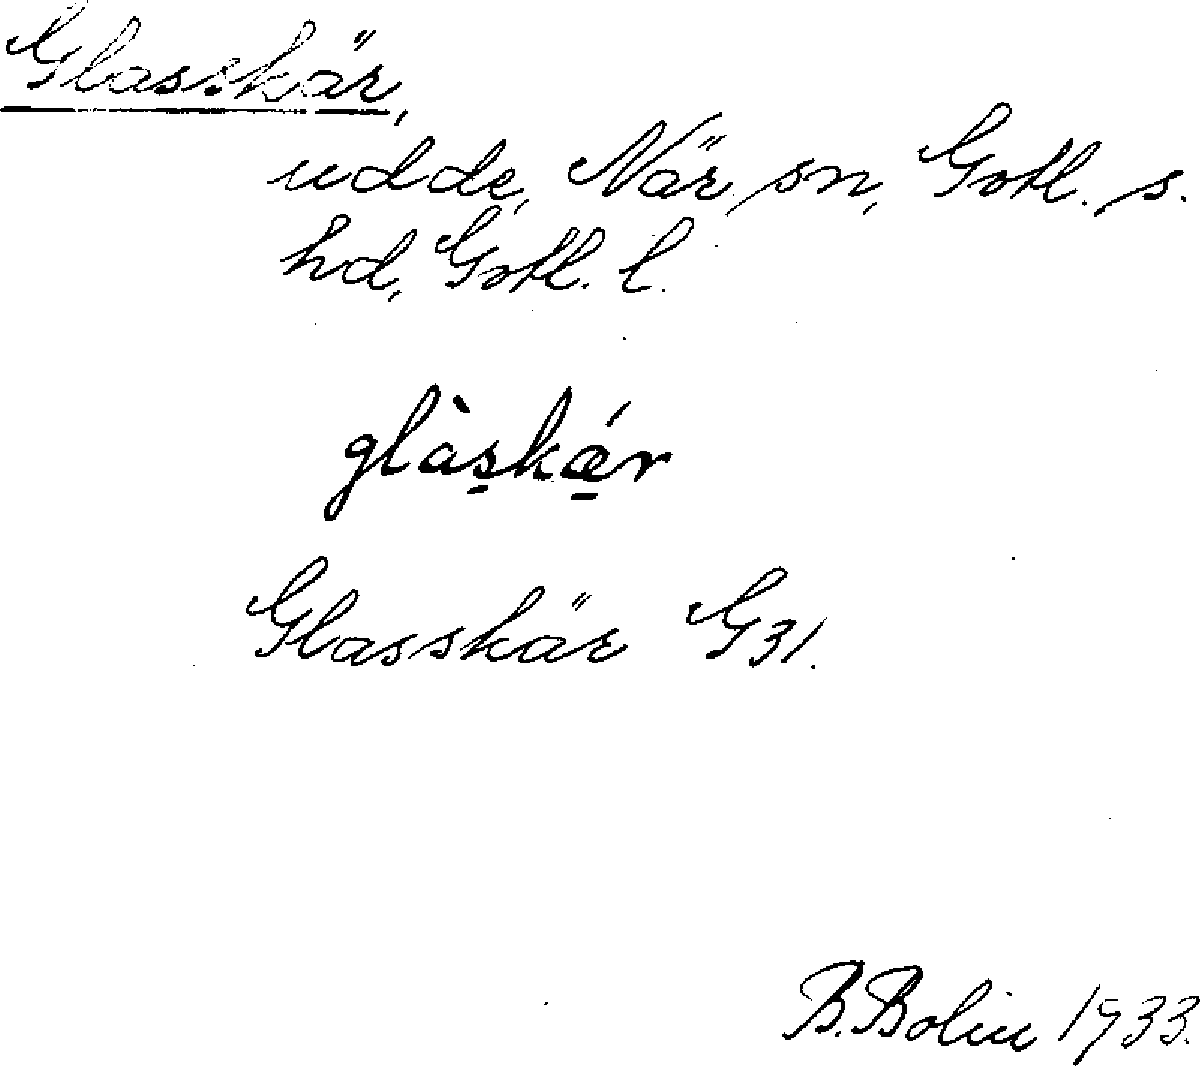 Glasskär,
udde, När sn, Gotl. s.
hd, Gotl. l.
glàs̱kǽ̱r
Glasskär G31.
B. Bolin 1933.